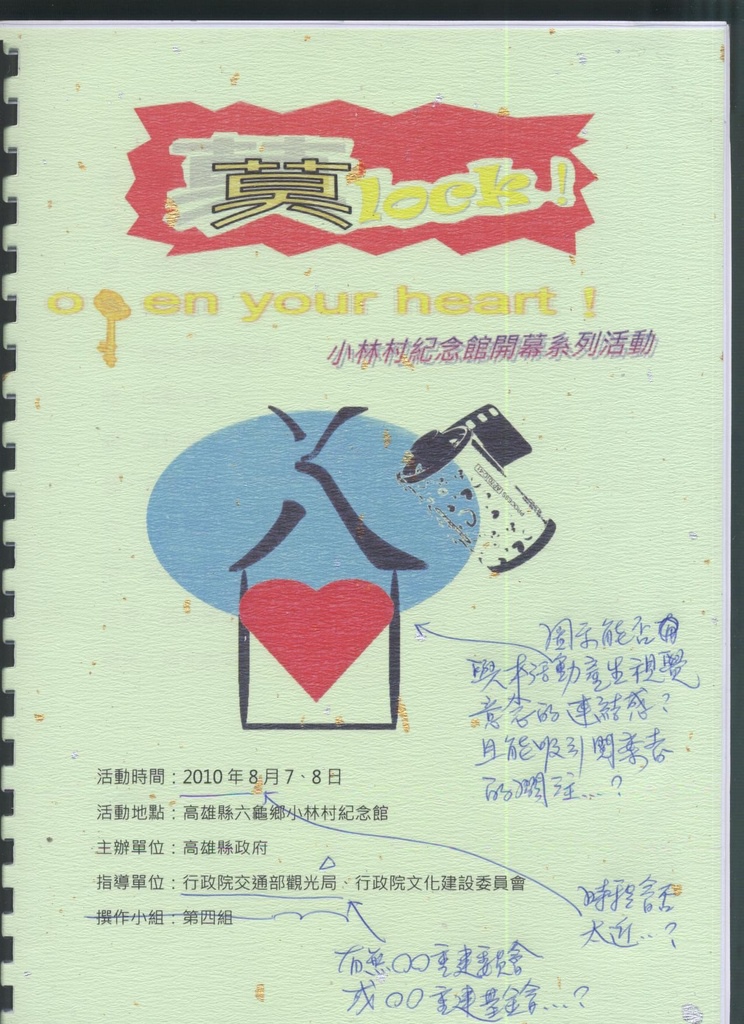 莫lock!
open your heart!
小林村紀念館開幕系列活動
圖示能否
與本活動產生視覺
意念的連結感?
且能吸引閱案者
的關注...?
活動時間：2010 年 8 月 7、8 日
活動地點：高雄縣六龜鄉小林村紀念館
主辦單位：高雄縣政府
指導單位：行政院交通部觀光局、行政院文化建設委員會
撰作小組：第四組
時程會否
太近..?
有無〇〇重建委員會
或〇〇重建基金會...?